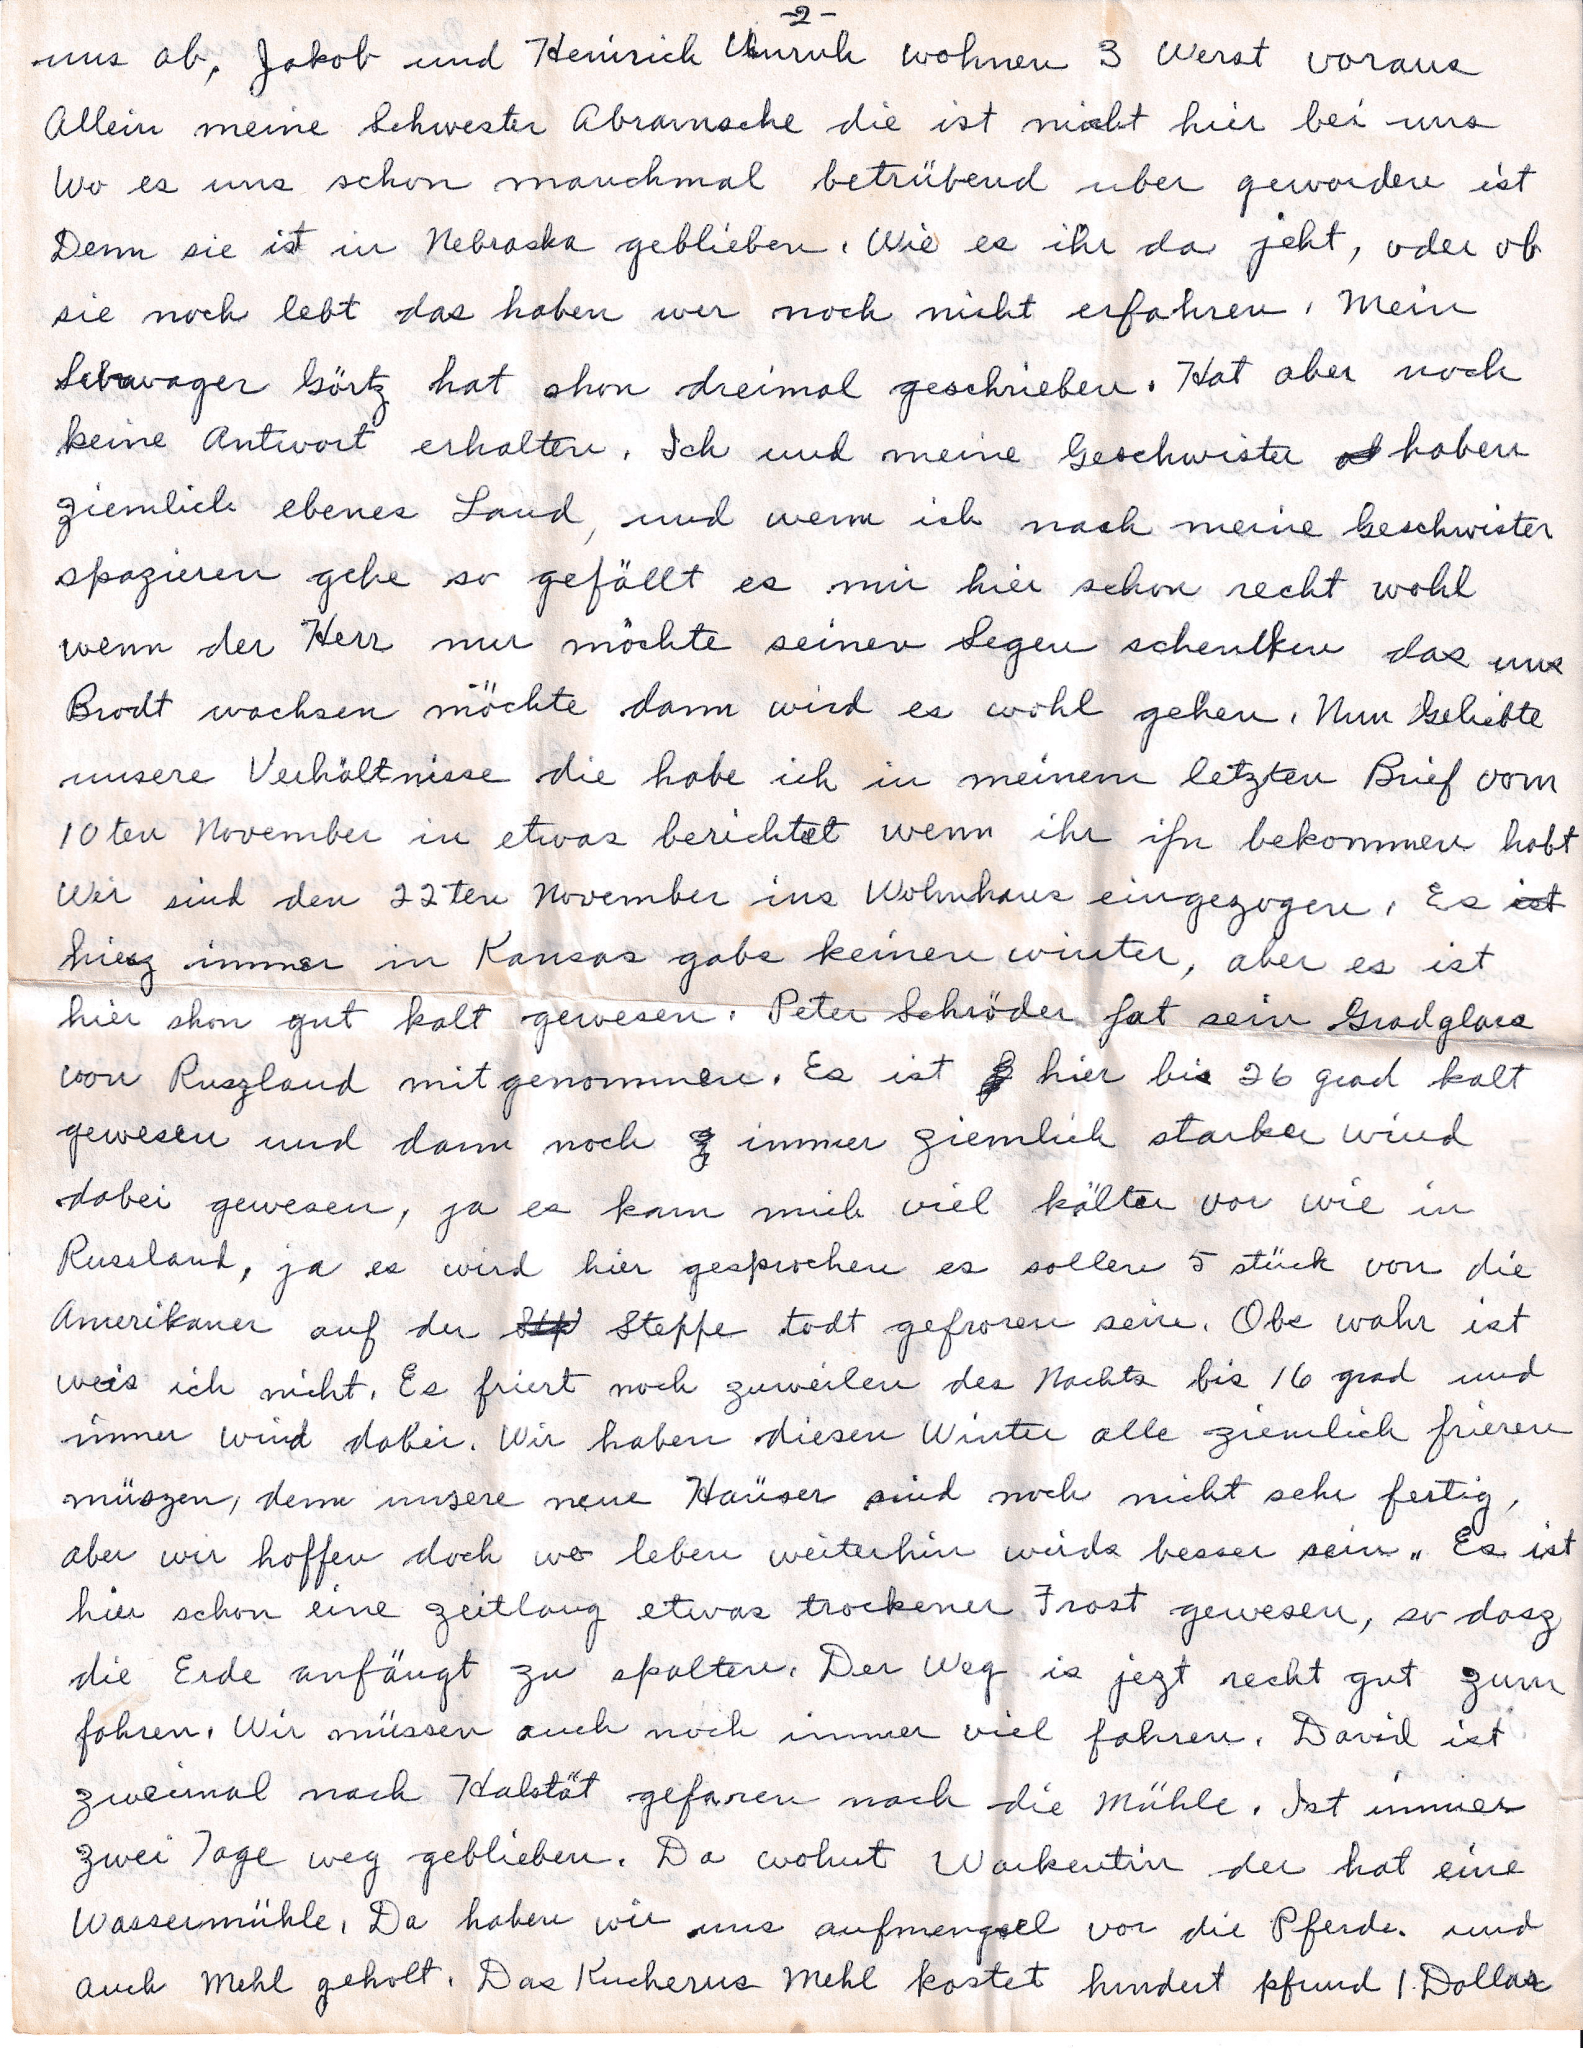 -2-
uns ab, Jakob und Heinrich Unruh wohnen 3 Werst voraus
Allein meine Schwester Abramsche die ist nicht hier bei uns
Wo es uns schon manchmal betrübend uber geworden ist
Denn sie ist in Nebraska geblieben. Wie es ihr da jeht, oder ob
sie noch lebt das haben wer noch nicht erfahren. Mein
Schwager Görtz hat shon dreimal geschrieben. Hat aber noch
keine Antwort erhalten. Ich und meine Geschwister haben
ziemlich ebenes Land, und wenn ich nach meine Geschwister
spazieren gehe so gefällt es mir hier schon recht wohl
wenn der Herr nur möchte seinen Segen schenken das uns
Brodt wachsen möchte dann wird es wohl gehen. Nun Geliebte
unsere Verhältnisse die habe ich in meinem letzten Brief vom
10ten November in etwas berichtet wenn ihr ihn bekommen habt
Wir sind den 22ten November ins Wohnhaus eingezogen. Es ist
hiesz immer in Kansas gabs keinen winter, aber es ist
hier shon gut kalt gewesen. Peter Schröder hat sein Gradglass
von Ruszland mitgenommen. Es ist hier bis 26 grad kalt
gewesen und dann noch immer ziemlich starker wind
dabei gewesen, ja es kam mich viel kälter vor wie in
Russland, ja es wird hier gesprochen es sollen 5 stück von die
Amerikaner auf der Steppe todt gefroren sein. Obs wahr ist
weis ich nicht. Es friert noch zuweilen des Nachts bis 16 grad und
immer wind dabei. Wir haben diesen Winter alle ziemlich frieren
müszen, denn unsere neue Haüser sind noch nicht sehr fertig,
aber wir hoffen doch wo leben weiterhin wirds besser sein. Es ist
hier schon eine zeitlang etwas trockener Frost gewesen, so dasz
die Erde anfängt zu spalten. Der Weg is jezt recht gut zum
fahren. Wir müssen auch noch immer viel fahren. David ist
zweimal nach Halstät gefaren nach die Mühle. Ist immer
zwei Tage weg geblieben. Da wohnt Warkentin der hat eine
Wassermühle. Da haben wir uns aufmengsel vor die Pferde. und
auch Mehl geholt. Das Kucherns Mehl kostet hundert pfund 1 Dollar